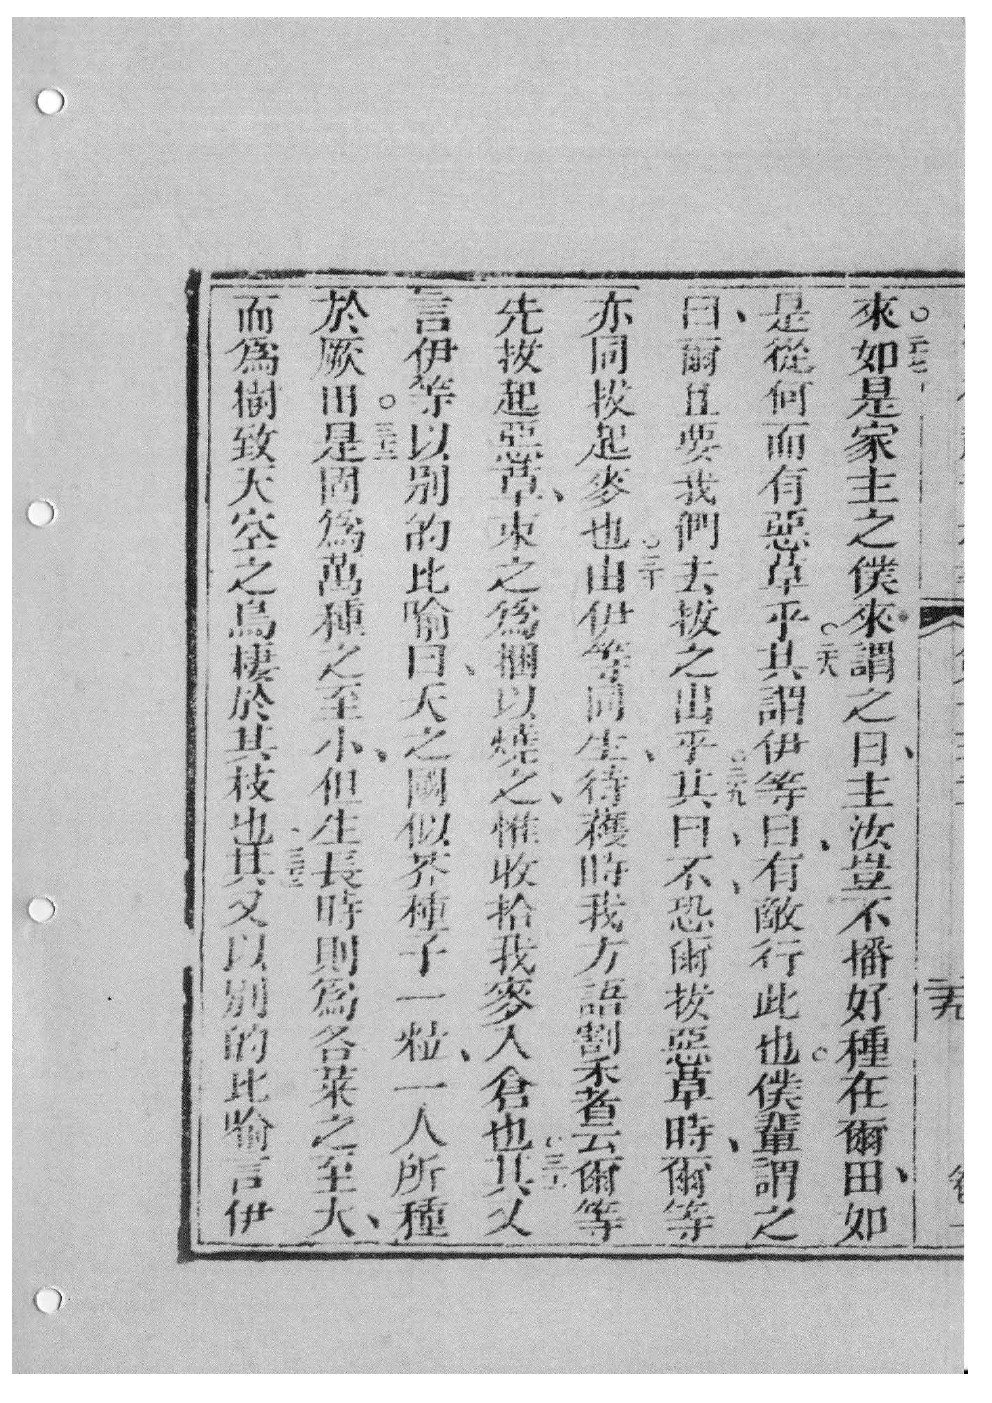 來○二十七如是家主之僕來謂之曰、主汝豈不播好種在爾田、如
是從何而有惡草乎○二十八其謂伊等曰、有敵行此也。僕輩謂之
曰、爾且要我們去拔之出乎○二十九其曰、不、恐爾拔惡草時、爾等
亦同拔起麥也○三十由伊等同生、待穫時我方語割禾者云爾等
先拔起惡草、束之爲捆以燒之、惟收拾我麥入倉也○三十一其又
言伊等以別的比喻曰、天之國似芥種子一粒、一人所種
於厥田○三十二是固爲萬種之至小、但生長時則爲各菜之至大、
而爲樹致天空之鳥棲於其枝也三十三其又以別的比喻言伊